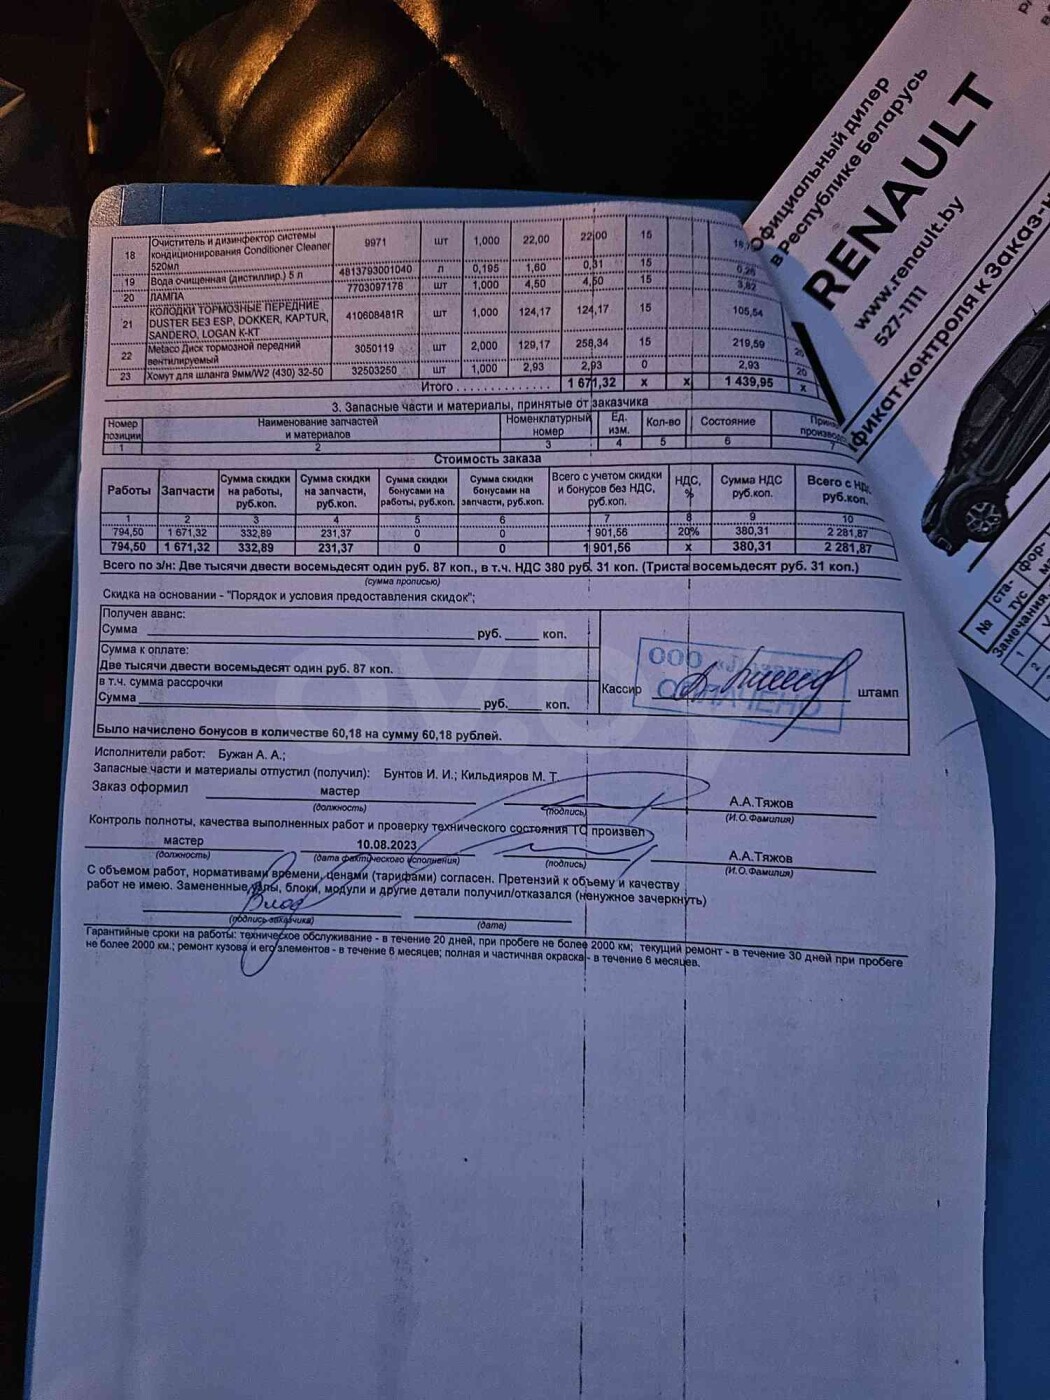 18 Очиститель и дизинфектор системы кондиционирования Conditioner Cleaner 520мл 9971 шт 1,000 22,00 22,00 15
19 Вода очищенная (дистиллир.) 5 л 4813793001040 л 0,195 1,60 0,31 15 0,26
20 ЛАМПА 7703097178 шт 1,000 4,50 4,50 15 3,82
21 КОЛОДКИ ТОРМОЗНЫЕ ПЕРЕДНИЕ DUSTER БЕЗ ESP, DOKKER, KAPTUR, SANDERO, LOGAN K-KT 410608481R шт 1,000 124,17 124,17 15 105,54
22 Metaco Диск тормозной передний вентилируемый 3050119 шт 2,000 129,17 258,34 15 219,59 20
23 Хомут для шланга 9мм/W2 (430) 32-50 32503250 шт 1,000 2,93 2,93 0 2,93 20
Итого . . . . . . . . . . . . . 1 671,32 х х 1 439,95 х
3. Запасные части и материалы, принятые от заказчика
Номер позиции Наименование запчастей и материалов Номенклатурный номер Ед. изм. Кол-во Состояние
1 2 3 4 5 6 7
Стоимость заказа
Работы Запчасти Сумма скидки на работы, руб.коп. Сумма скидки на запчасти, руб.коп. Сумма скидки бонусами на работы, руб.коп. Сумма скидки бонусами на запчасти, руб.коп. Всего с учетом скидки и бонусов без НДС, руб.коп. НДС, % Сумма НДС руб.коп. Всего с руб.коп.
1 2 3 4 5 6 7 8 9 10
794,50 1 671,32 332,89 231,37 0 0 1 901,56 20% 380,31 2 281,87
794,50 1 671,32 332,89 231,37 0 0 1 901,56 х 380,31 2 281,87
Всего по з/н: Две тысячи двести восемьдесят один руб. 87 коп., в т.ч. НДС 380 руб. 31 коп. (Триста восемьдесят руб. 31 коп.)
(сумма прописью)
Скидка на основании - "Порядок и условия предоставления скидок";
Получен аванс:
Сумма руб. коп.
Сумма к оплате:
Две тысячи двести восемьдесят один руб. 87 коп.
в т.ч. сумма рассрочки
Сумма руб. коп.
ООО
ОПЛАЧЕНО
Кассир штамп
Было начислено бонусов в количестве 60,18 на сумму 60,18 рублей.
Исполнители работ: Бужан А. А.;
Запасные части и материалы отпустил (получил): Бунтов И. И.; Кильдияров М. Т.
Заказ оформил мастер А.А.Тяжов
(должность) (подпись) (И.О.Фамилия)
Контроль полноты, качества выполненных работ и проверку технического состояния ТС произвел
мастер 10.08.2023 А.А.Тяжов
(должность) (дата фактического исполнения) (подпись) (И.О.Фамилия)
С объемом работ, нормативами времени, ценами (тарифами) согласен. Претензий к объему и качеству
работ не имею. Замененные узлы, блоки, модули и другие детали получил/отказался (ненужное зачеркнуть)
(подпись заказчика) (дата)
Гарантийные сроки на работы: техническое обслуживание - в течение 20 дней, при пробеге не более 2000 км; текущий ремонт - в течение 30 дней при пробеге
не более 2000 км.; ремонт кузова и его элементов - в течение 6 месяцев; полная и частичная окраска - в течение 6 месяцев.
Официальный дилер
в Республике Беларусь
RENAULT
www.renault.by
527-1111
фикат контроля к Заказ-н
№ ста-тус
Замечания,
1
2
av.by